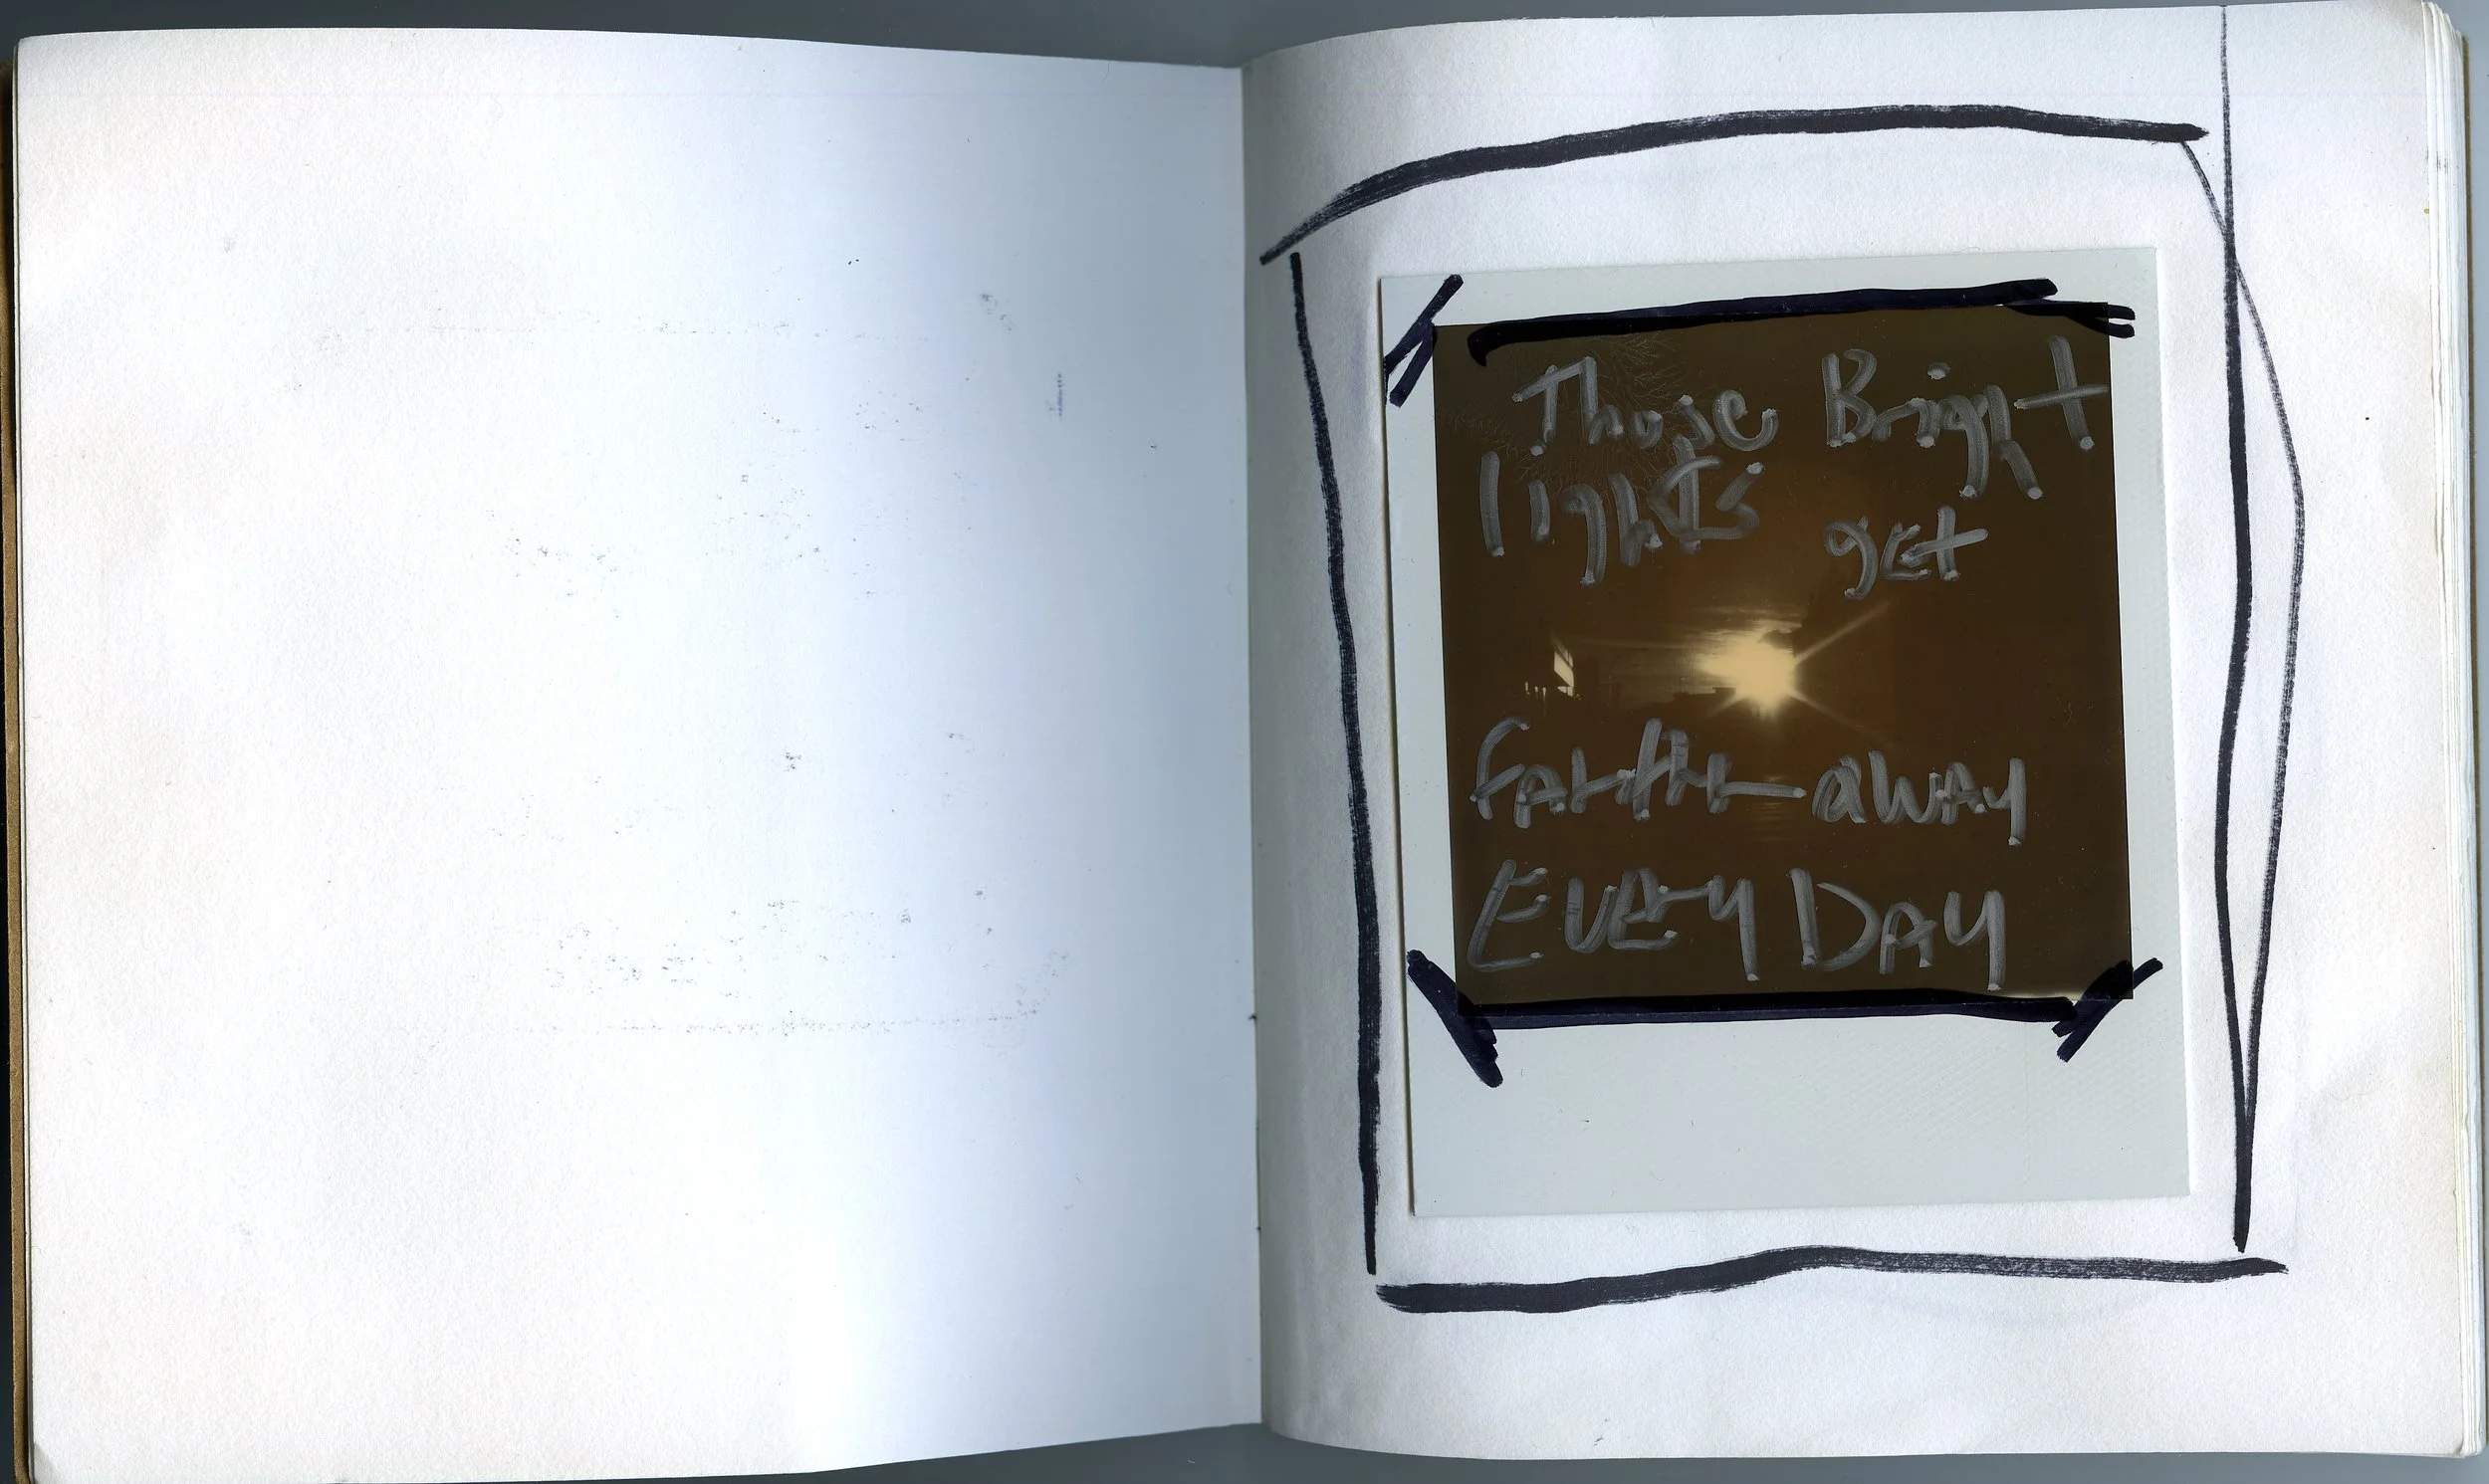 Those Bright
lights get
farther away
EVERY DAY